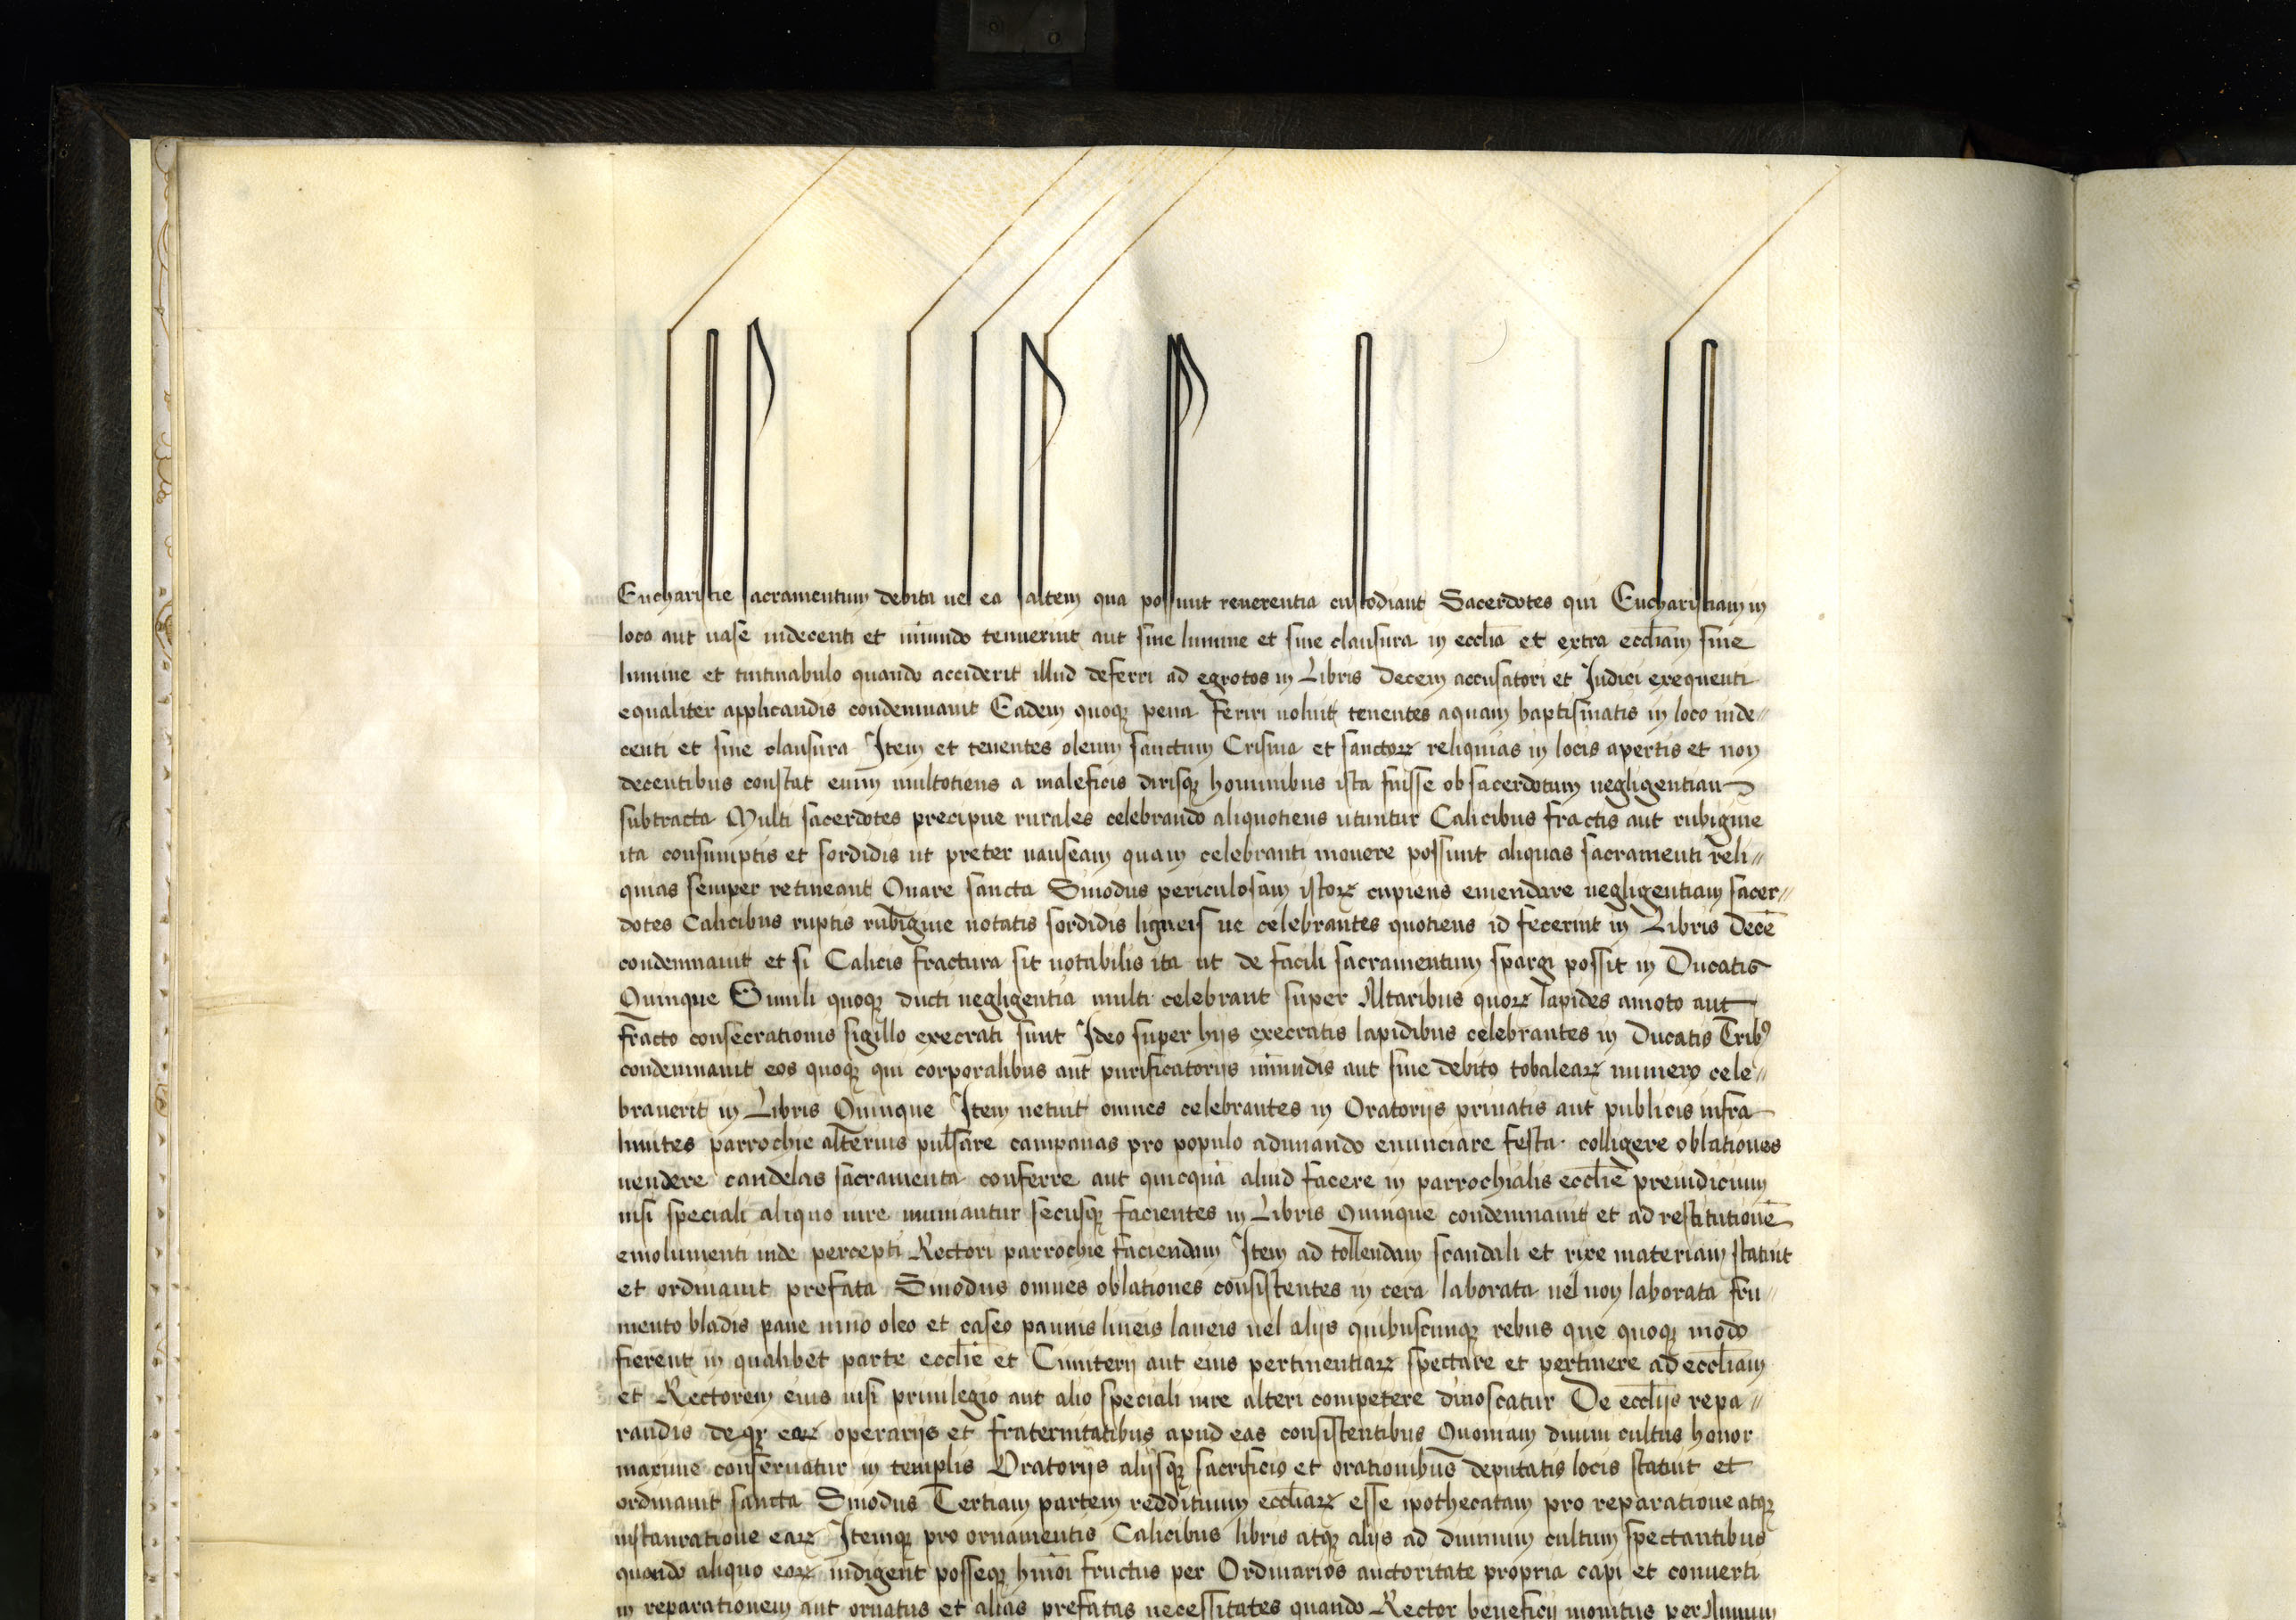 Eucharistie sacramentum debita uel ea saltem qua possunt reuerentia custodiant Sacerdotes qui Eucharistiam in
loco aut uase indecenti et im̄undo tenuerint aut sine lumine et sine clausura in eccl̄ia et extra eccl̄iam sine
lumine et tintinabulo quando acciderit illud deferri ad egrotos in Libris Decem accusatori et Iudici exequenti
equaliter applicandis condemnauit Eadem quoqꝫ pena feriri uoluit tenentes aquam baptismatis in loco inde〃
centi et sine clausura Item et tenentes oleum sanctum Crisma et sanctoꝝ reliquias in locis apertis et non
decentibus constat enim̄ multotiens a maleficis dirisqꝫ hominibus ista fuisse ob sacerdotum negligentiam
subtracta Multi sacerdotes precipue rurales celebrando aliquotiens utuntur Calicibus fractis aut rubigine
ita consumptis et sordidis ut preter nauseam quam celebranti mouere possunt aliquas sacramenti reli〃
quias semper retineant Quare sancta Sinodus periculosam istoꝝ cupiens emendare negligentiam sacer〃
dotes Calicibus ruptis rubigine notatis sordidis ligneis ue celebrantes quotiens id fecerint in Libris Decē
condemnauit et si Calicis fractura sit notabilis ita ut de facili sacramentum spargi possit in Ducatis
Quinque Simili quoqꝫ ducti negligentia multi celebrant super Altaribus quoꝝ lapides amoto aut
fracto consecrationis sigillo execrati sunt Ideo super hijs execratis lapidibus celebrantes in Ducatis Tribꝰ
condemnauit eos quoqꝫ qui corporalibus aut purificatorijs im̄undis aut sine debito tobaleaꝝ numero cele〃
brauerit in Libris Quinque Item uetuit omnes celebrantes in Oratorijs priuatis aut publicis infra
limites parrochie alterius pulsare campanas pro populo adunando enunciare festa colligere oblationes
uendere candelas sacramenta conferre aut quicquā aliud facere in parrochialis eccl̄ie preiudicium
nisi speciali aliquo iure muniantur secusqꝫ facientes in Libris Quinque condemnauit et ad restitutionē
emolumenti inde percepti Rectori parrochie faciendam Item ad tollendam scandali et rixe materiam statuit
et ordinauit prefata Sinodus omnes oblationes consistentes in cera laborata uel non laborata fru〃
mento bladis pane uino oleo et caseo pannis lineis laneis uel alijs quibuscunqꝫ rebus que quoqꝫ modo
fierent in qualibet parte eccl̄ie et Cimiterij aut eius pertinentiaꝝ spectare et pertinere ad eccl̄iam
et Rectorem eius nisi priuilegio aut alio speciali iure alteri competere dinoscatur De eccl̄ijs repa〃
randis deqꝫ eaꝝ operarijs et fraternitatibus apud eas consistentibus Quoniam diuini cultus honor
maxime conseruatur in templis Oratorijs alijsqꝫ sacrificio et orationibus deputatis locis statuit et
ordinauit sancta Sinodus Tertiam partem reddituum eccl̄iaꝝ esse ipothecatam pro reparatione atqꝫ
instauratione eaꝝ Itemqꝫ pro ornamentis Calicibus libris atqꝫ alijs ad diuinum cultum spectantibus
quando aliquo eoꝝ indigent posseqꝫ hmōi fructus per Ordinarios auctoritate propria capi et conuerti
in reparationem aut ornatus et alias prefatas necessitates quando Rector beneficij monitus per Annum